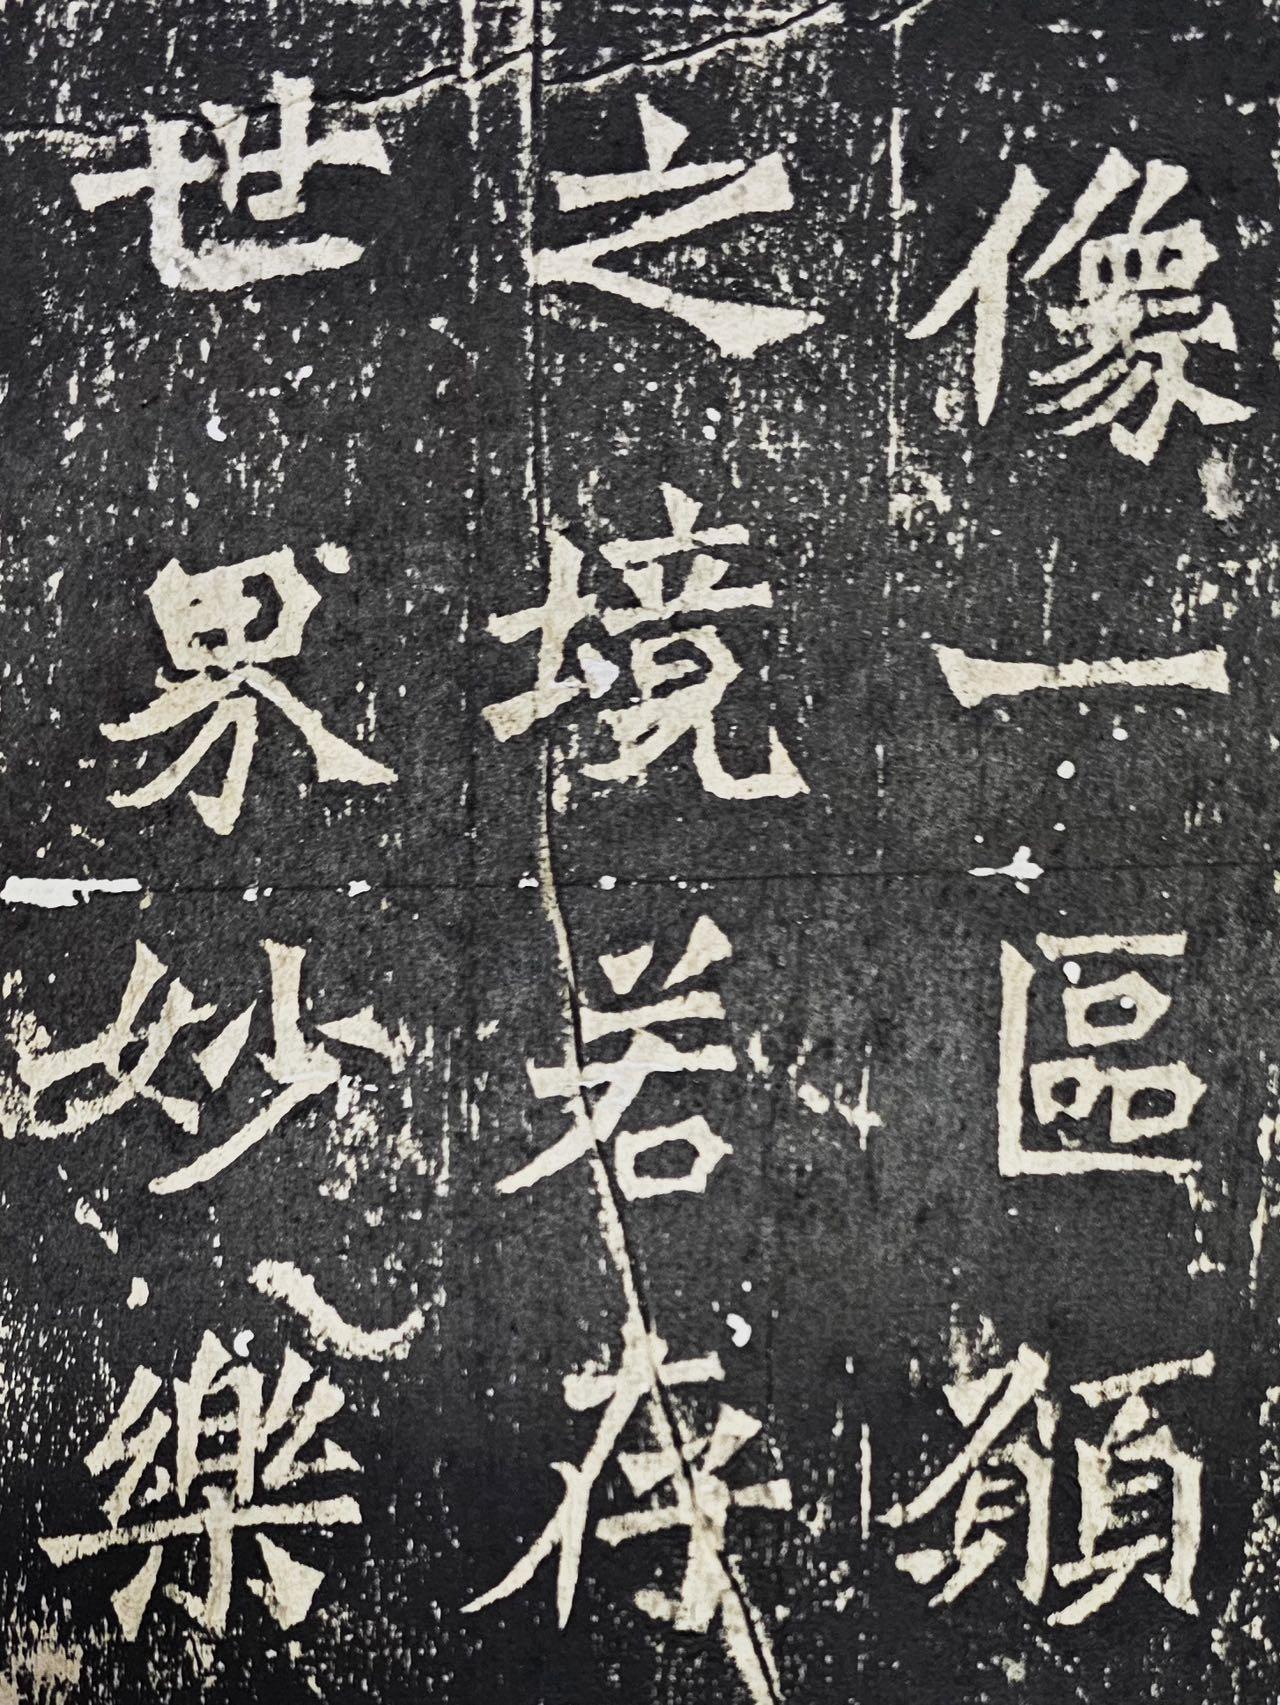 像一區願
之境若存
世界妙樂